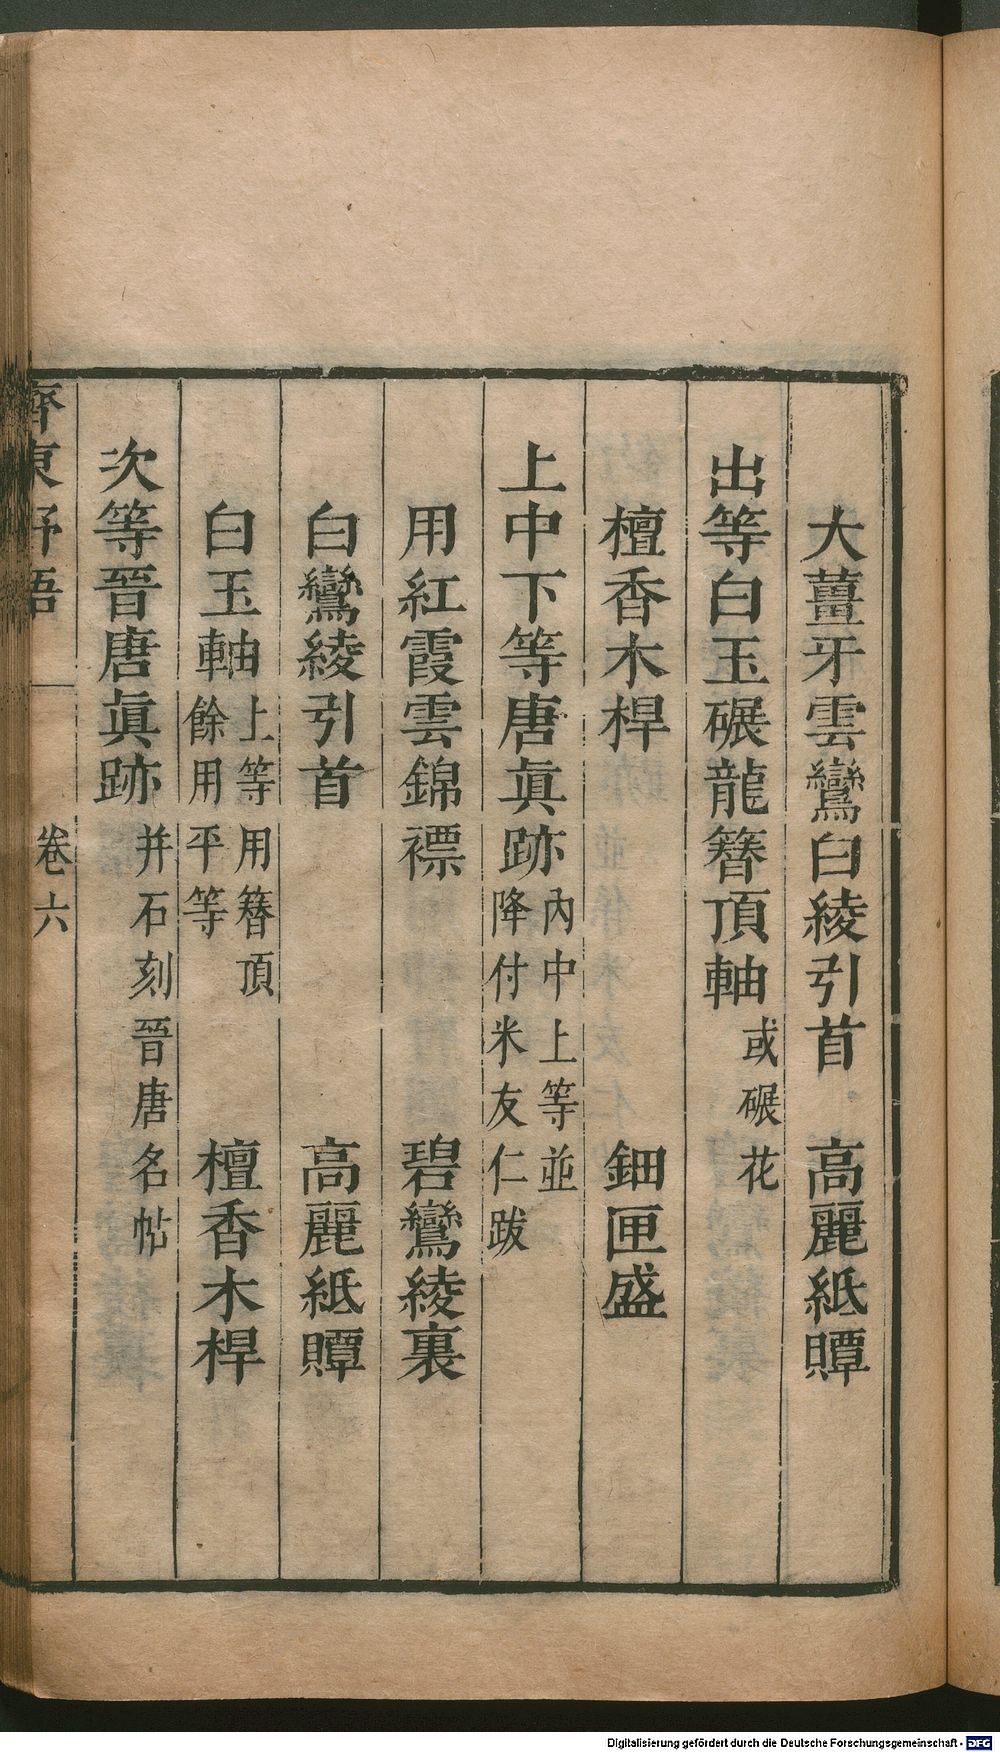 大薑牙雲鸞白綾引首　高麗紙贉
出等白玉碾龍簪頂軸或碾花
檀香木桿　鈿匣盛
上中下等唐眞跡內中上等並降付米友仁跋
用紅霞雲錦褾　碧鸞綾裏
白鸞綾引首　高麗紙贉
白玉軸上等用簪頂餘用平等　檀香木桿
次等晉唐眞跡并石刻晉唐名帖
齊東野語　卷六
Digitalisierung gefördert durch die Deutsche Forschungsgemeinschaft - DFG